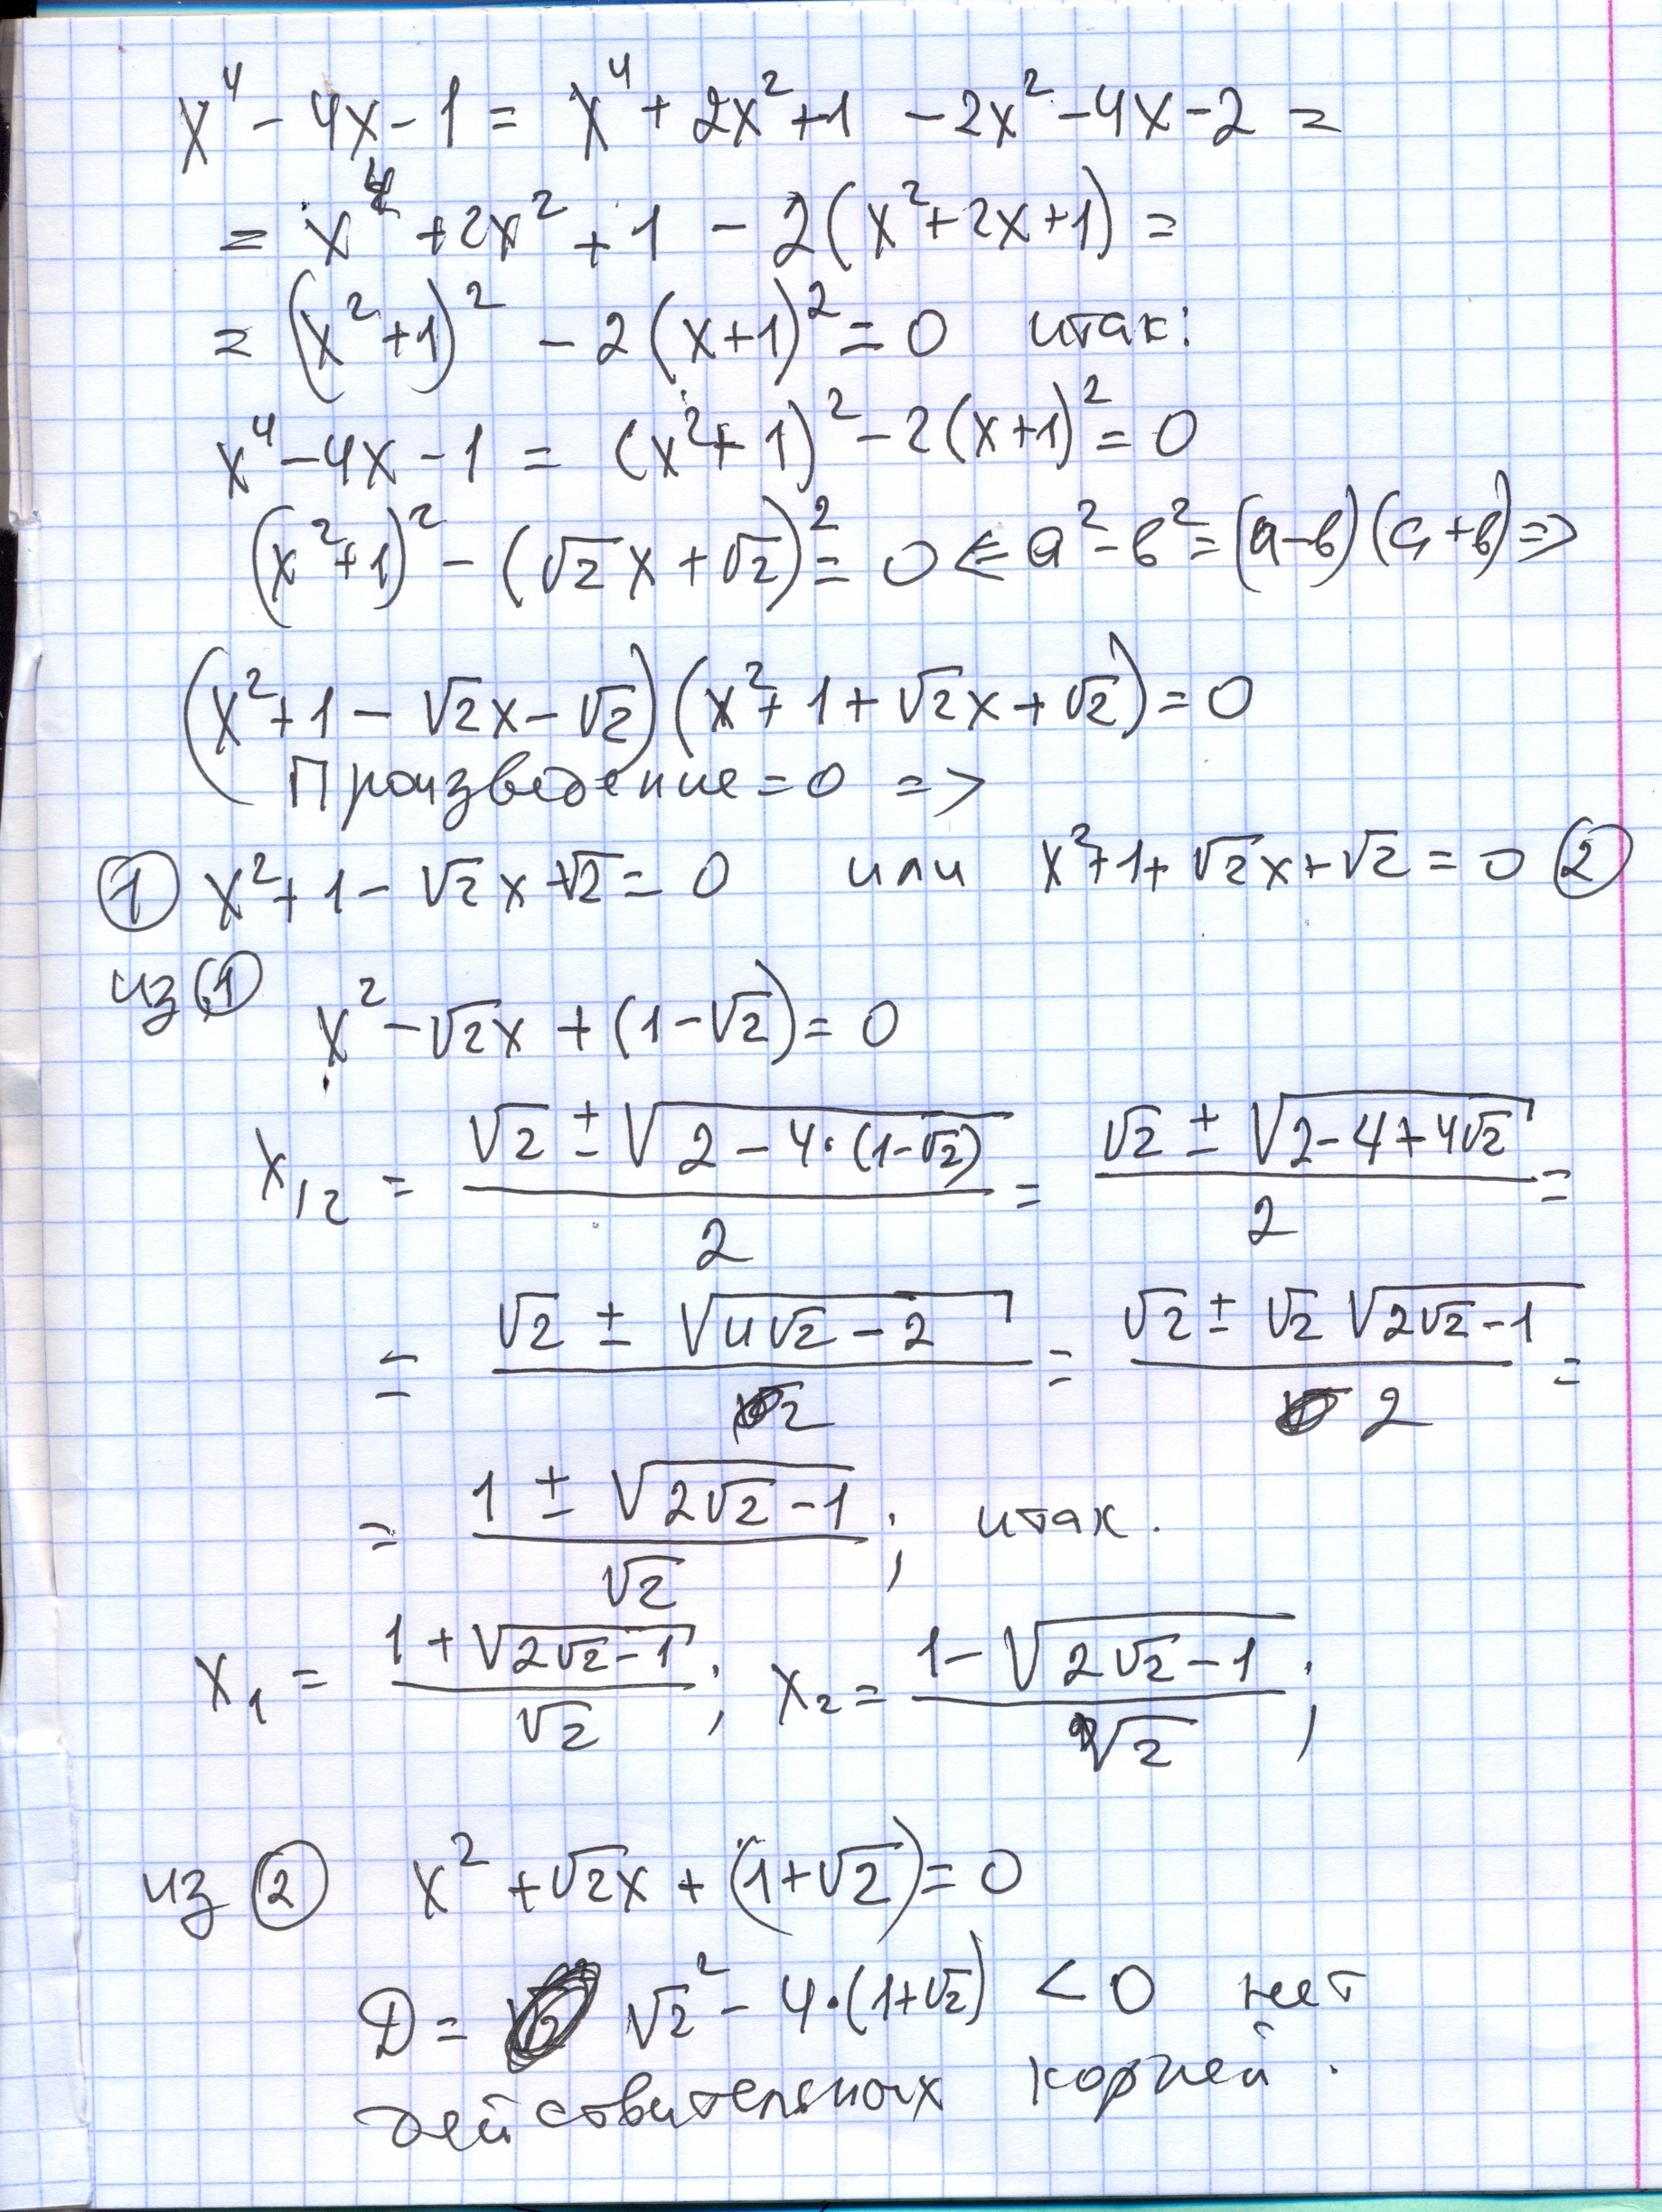 x⁴ - 4x - 1 = x⁴ + 2x² + 1 - 2x² - 4x - 2 =
= x⁴ + 2x² + 1 - 2(x² + 2x + 1) =
= (x² + 1)² - 2(x + 1)² = 0 итак:
x⁴ - 4x - 1 = (x² + 1)² - 2(x + 1)² = 0
(x² + 1)² - (√2x + √2)² = 0 ⇐ a² - b² = (a - b)(a + b) =>
(x² + 1 - √2x - √2)(x² + 1 + √2x + √2) = 0
Произведение = 0 =>
① x² + 1 - √2x - √2 = 0 или x² + 1 + √2x + √2 = 0 ②
из ① x² - √2x + (1 - √2) = 0
x₁₂ = (√2 ± √(2 - 4·(1 - √2)))/2 = (√2 ± √(2 - 4 + 4√2))/2 =
= (√2 ± √(4√2 - 2))/2 = (√2 ± √2 √(2√2 - 1))/2 =
= (1 ± √(2√2 - 1))/√2 ; итак.
x₁ = (1 + √(2√2 - 1))/√2 ; x₂ = (1 - √(2√2 - 1))/√2 ;
из ② x² + √2x + (1 + √2) = 0
D = √2² - 4·(1 + √2) < 0 нет
действительных корней.